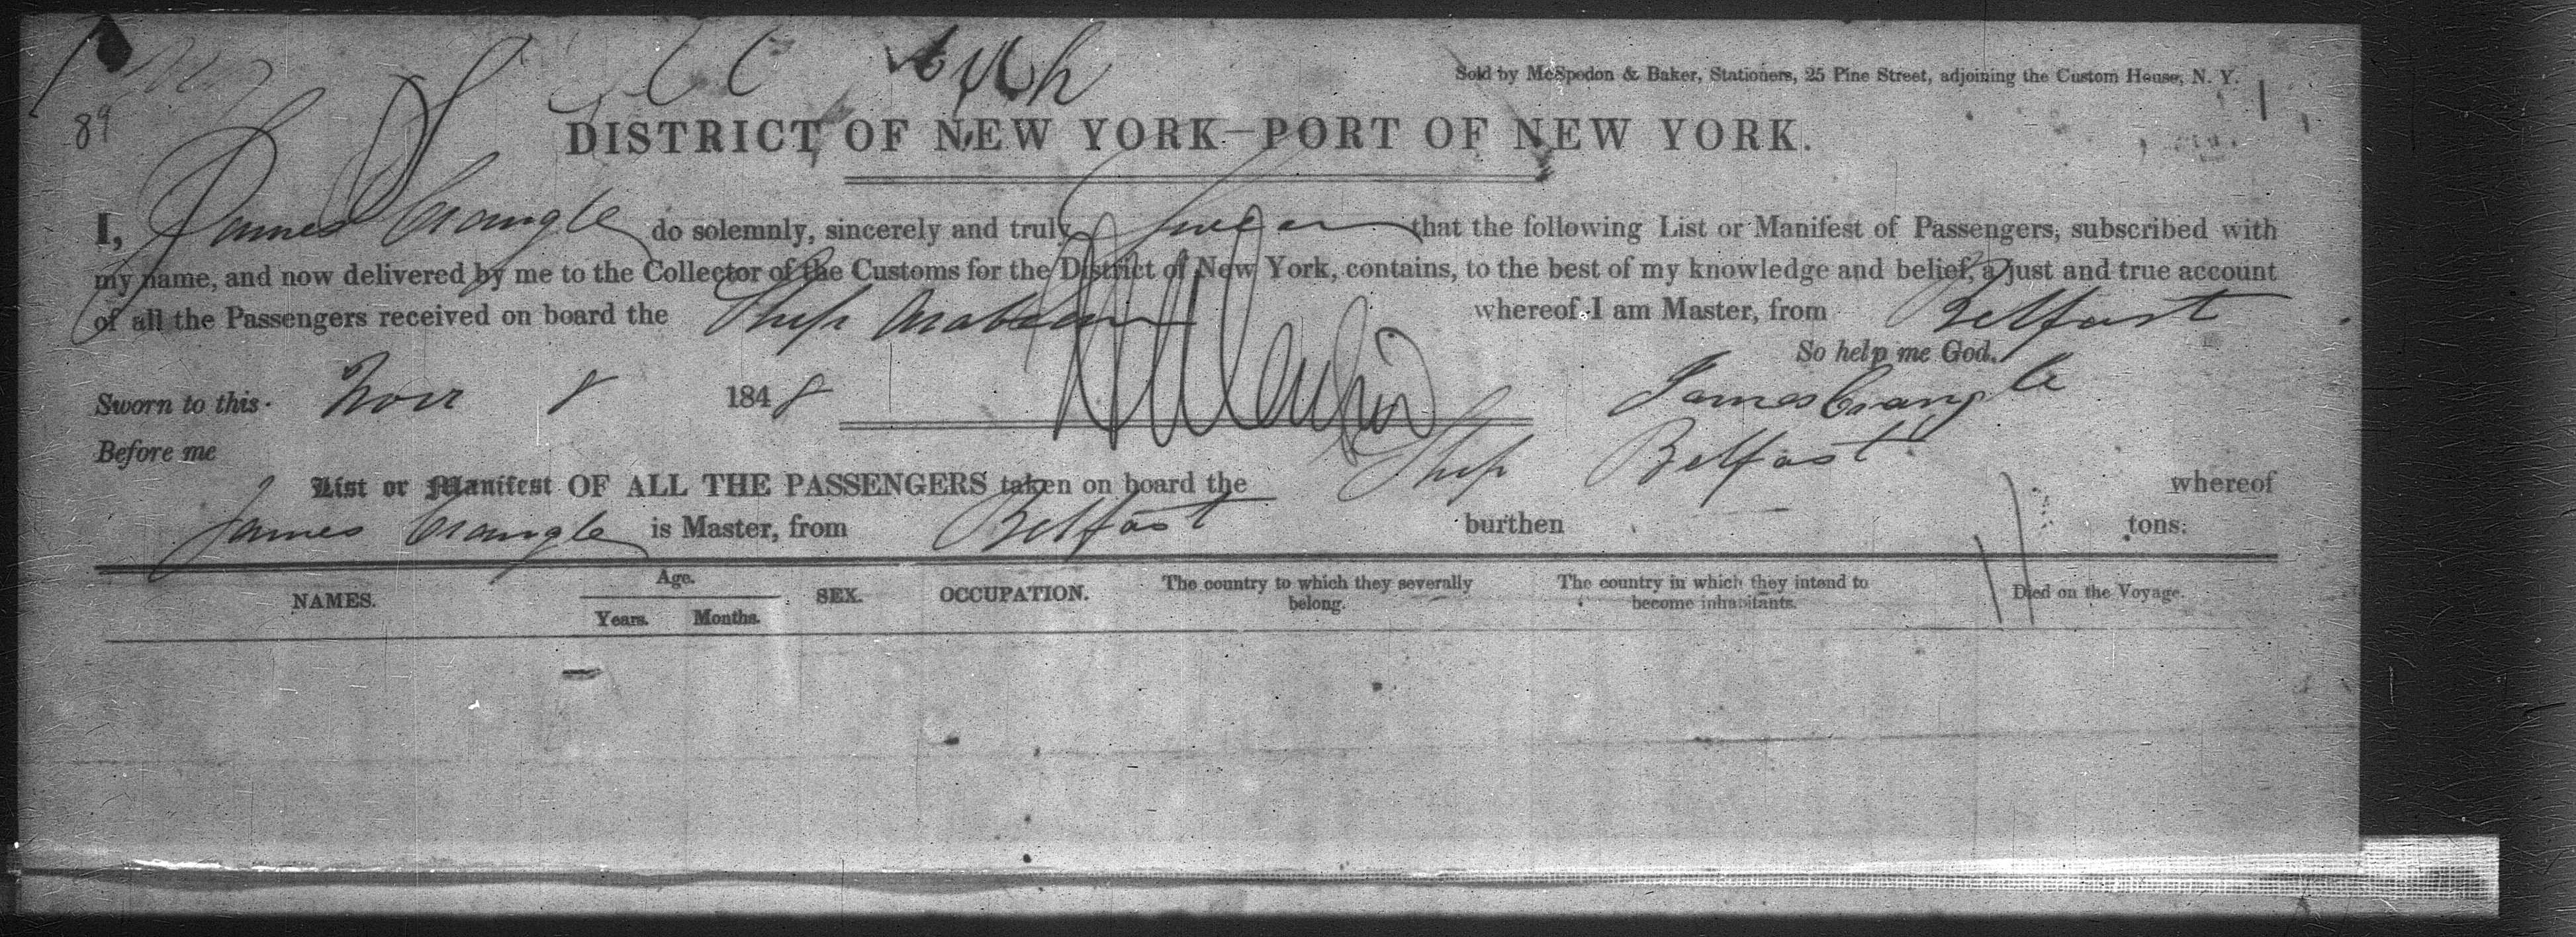 Sold by McSpedon & Baker, Stationers, 25 Pine Street, adjoining the Custom House, N. Y.
89
DISTRICT OF NEW YORK—PORT OF NEW YORK.
I, James Crangle do solemnly, sincerely and truly swear that the following List or Manifest of Passengers, subscribed with
my name, and now delivered by me to the Collector of the Customs for the District of New York, contains, to the best of my knowledge and belief, a just and true account
of all the Passengers received on board the Ship whereof I am Master, from Belfast
So help me God.
Sworn to this Novr 8 1848 James Crangle
Before me
List or Manifest OF ALL THE PASSENGERS taken on board the Ship Belfast whereof
James Crangle is Master, from Belfast burthen tons.
NAMES. Age. Years. Months. SEX. OCCUPATION. The country to which they severally belong. The country in which they intend to become inhabitants. Died on the Voyage.